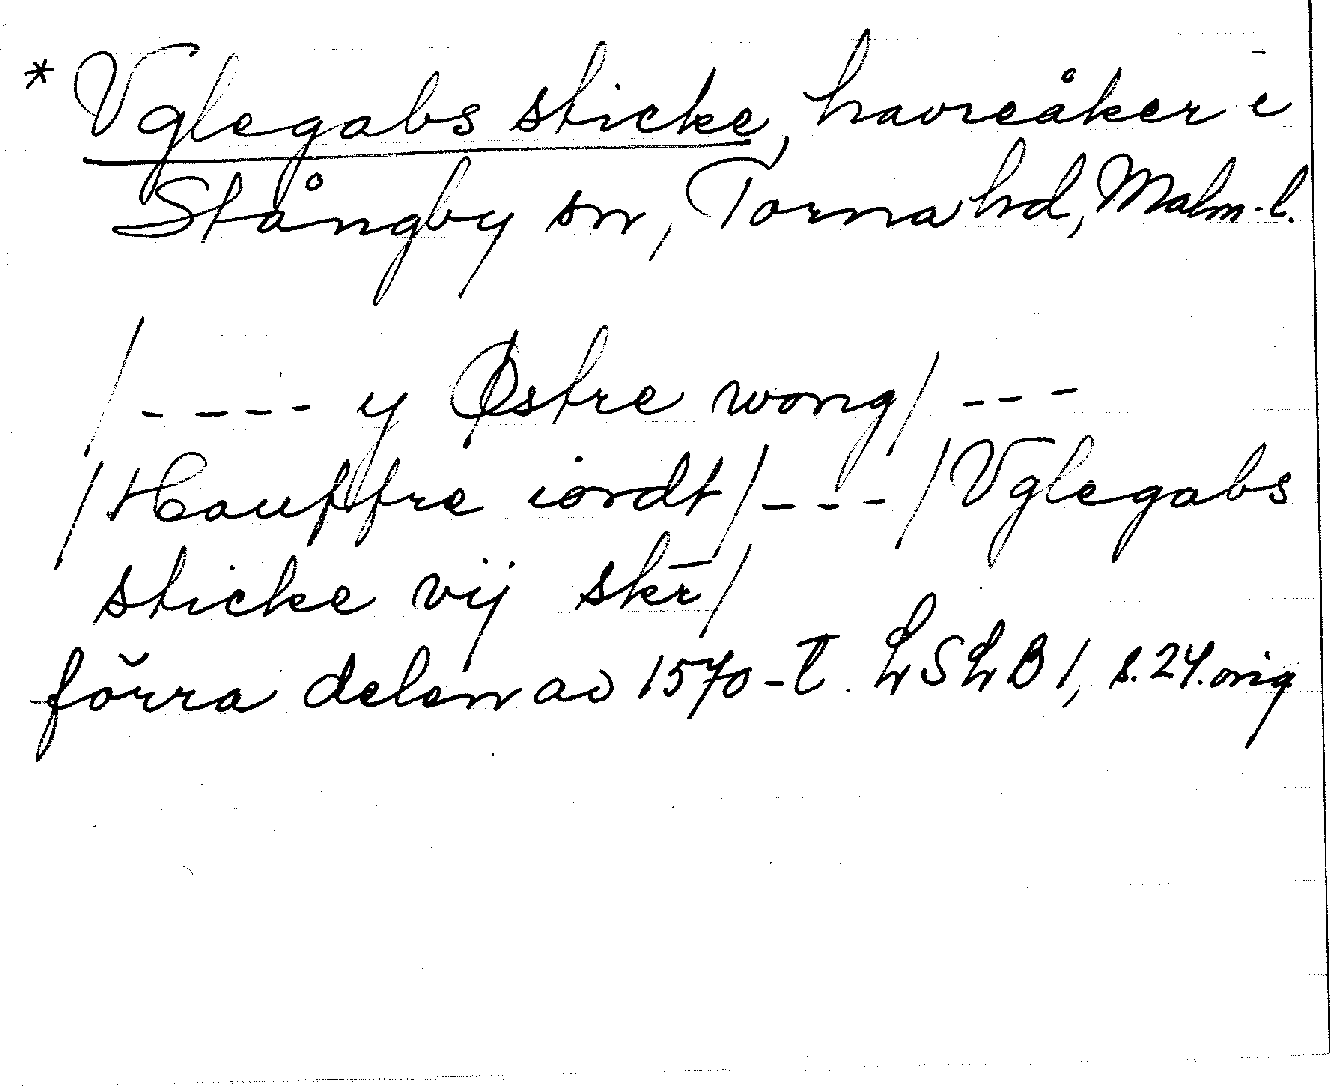 * Vglegabs sticke, havreåker i
Stångby sn, Torna hd, Malm-l.
/---- y Østre wong/ ---
/Hauffre iordt/---/Vglegabs
sticke vij skr̄/
förra delen av 1570-t. LSLB 1, s.24.orig